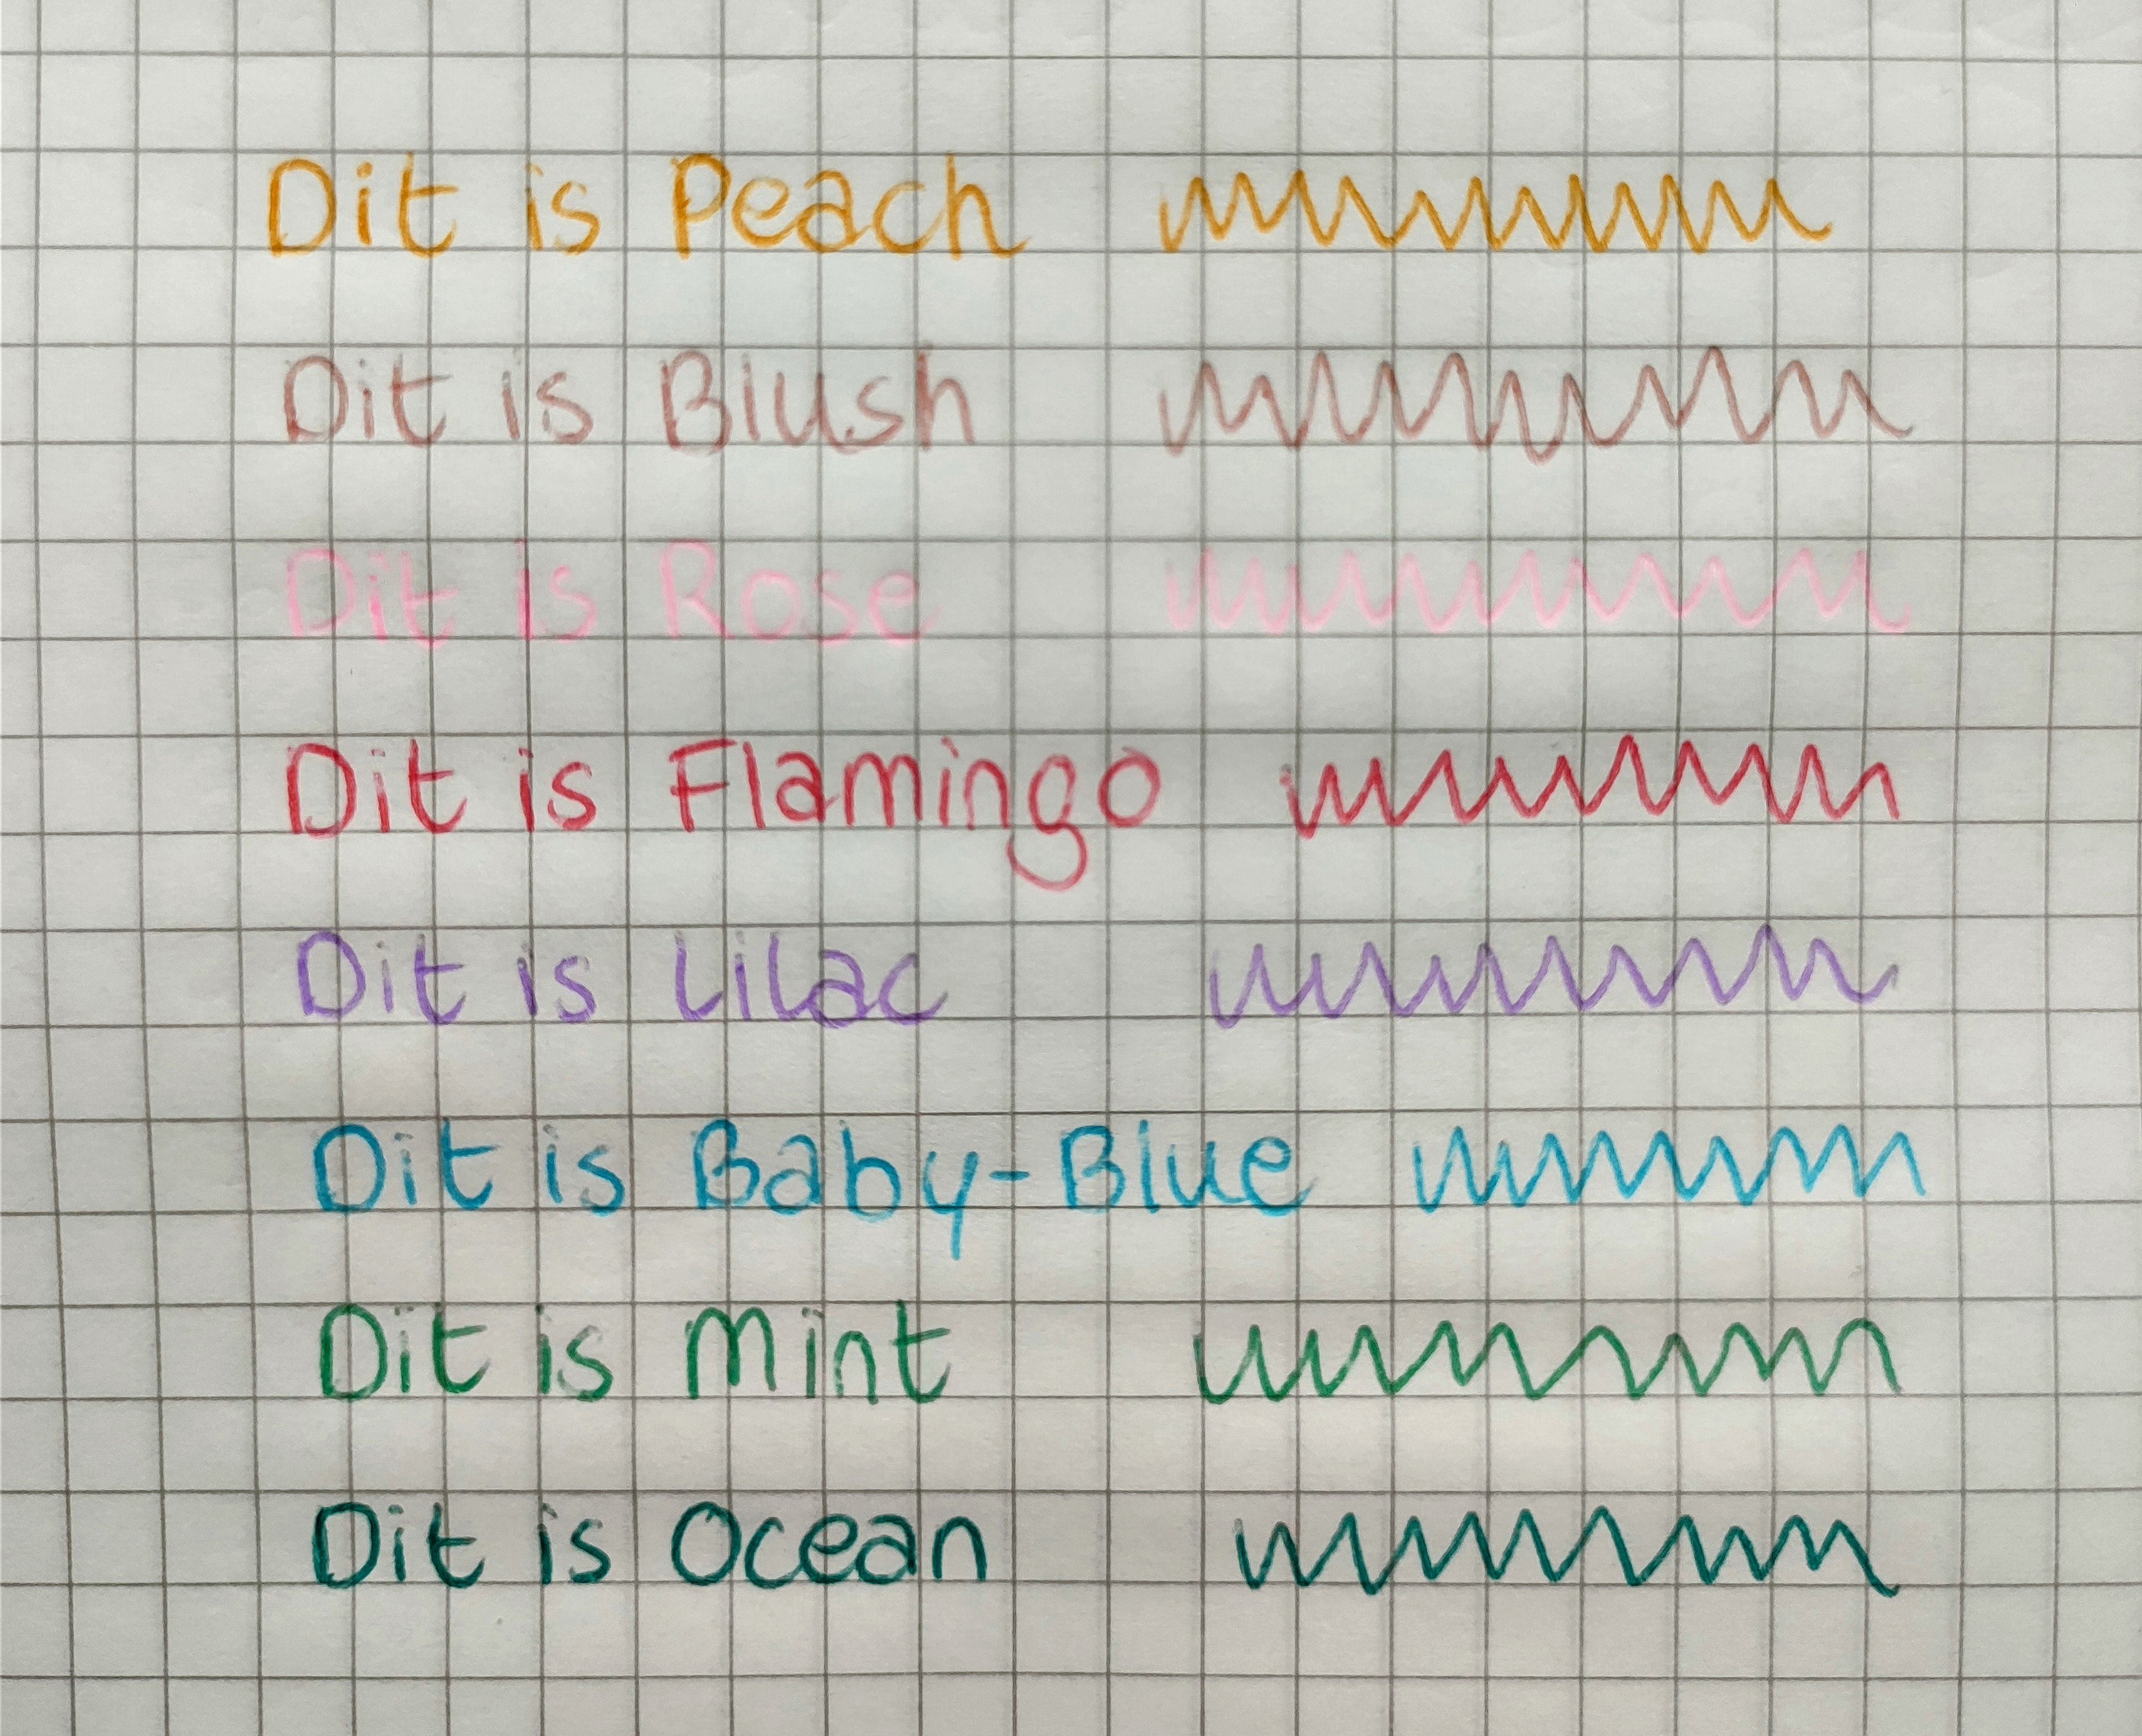 Dit is Peach
Dit is Blush
Dit is Rose
Dit is Flamingo
Dit is Lilac
Dit is Baby-Blue
Dit is Mint
Dit is Ocean